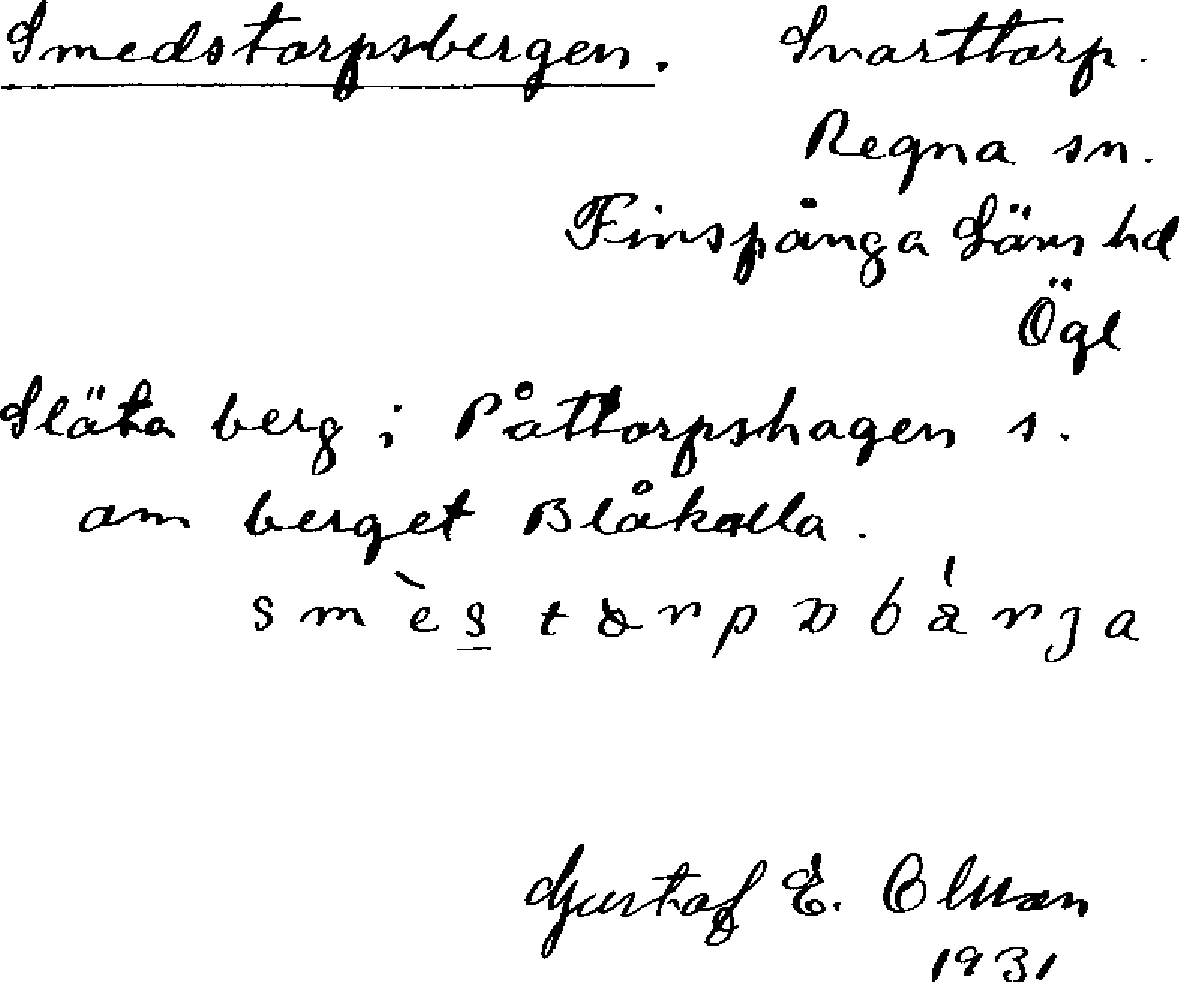 Smedstorpsbergen. Svarttorp.
Regna sn.
Finspånga Läns hd
Ögl
Släta berg i Påttorpshagen s.
om berget Blåkulla.
Gustaf E. Olsson
1931